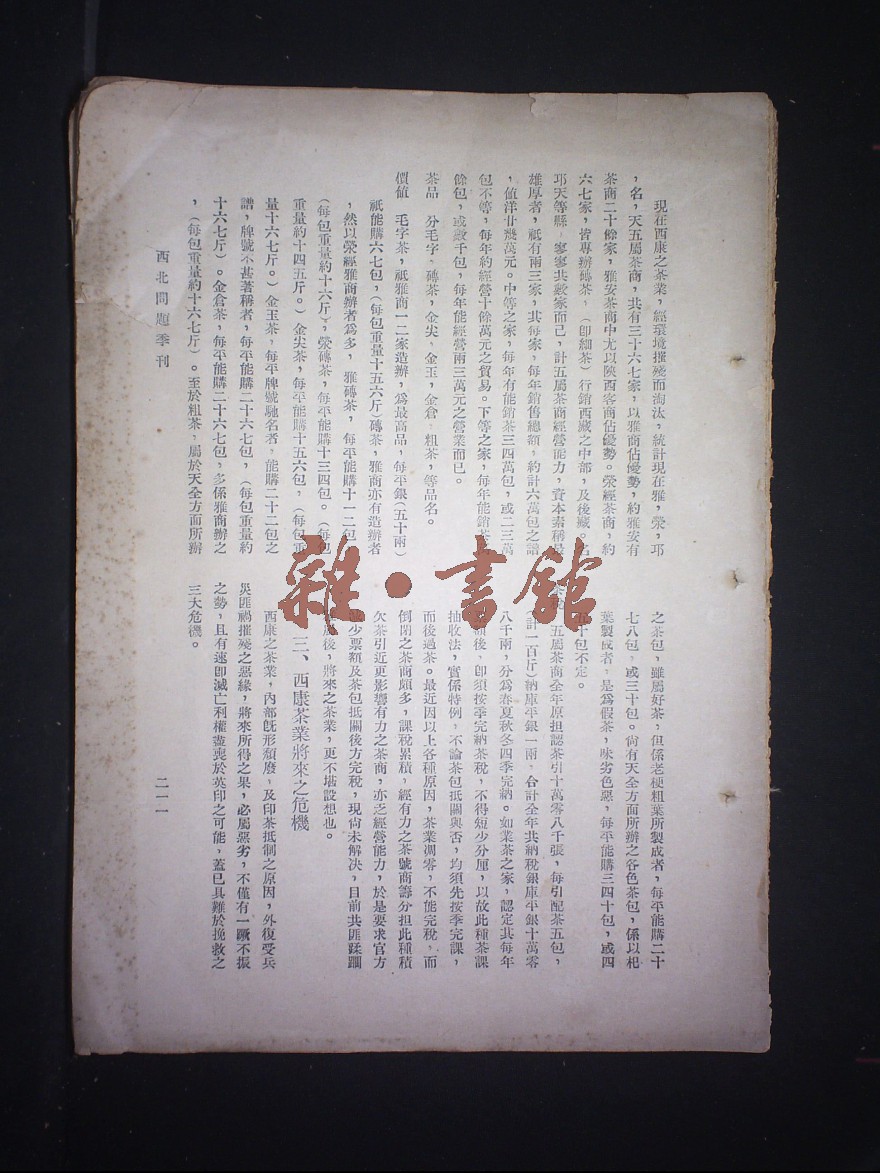 現在西康之茶業，經環境摧殘而淘汰，統計現在雅，榮，邛
，名，天五屬茶商，共有三十六七家，以雅商佔優勢，約雅安有
茶商二十餘家，雅安茶商中尤以陝西客商佔優勢。榮經茶商，約
六七家，皆專辦磚茶，（即細茶）行銷西藏之中部，及後藏。名
邛天等縣，寥寥共數家而已，計五屬茶商經營能力，資本素稱最
雄厚者，祇有兩三家，其每家，每年銷售總額，約計六萬包之譜
，値洋廿幾萬元。中等之家，每年有能銷茶三四萬包，或二三萬
包不等，每年約經營十餘萬元之貿易。下等之家，每年能銷茶
餘包，或數千包，每年能經營兩三萬元之營業而已。
茶品　分毛字，磚茶，金尖，金玉，金倉，粗茶，等品名。
價値　毛字茶，祇雅商一二家造辦，爲最高品，每平銀（五十兩）
祇能購六七包，（每包重量十五六斤）磚茶，雅商亦有造辦者
，然以榮經雅商辦者爲多，雅磚茶，每平能購十一二包
（每包重量約十六斤），榮磚茶，每平能購十三四包。（每包
重量約十四五斤。）金尖茶，每平能購十五六包，（每包重
量十六七斤。）金玉茶，每平牌號馳名者，能購二十二包之
譜，牌號不甚著稱者，每平能購二十六七包，（每包重量約
十六七斤）。金倉茶，每平能購二十六七包，多係雅商辦之
，（每包重量約十六七斤）。至於粗茶，屬於天全方面所辦
之茶包，雖屬好茶，但係老梗粗葉所製成者，每平能購二十
七八包，或三十包。尙有天全方面所辦之各色茶包，係以杷
葉製成者，是爲假茶，味劣色惡，每平能購三四十包，或四
五十包不定。
茶稅　五屬茶商全年原担認茶引十萬零八千張，每引配茶五包，
（計一百斤）納庫平銀一兩，合計全年共納稅銀庫平銀十萬零
八千兩，分爲春夏秋冬四季完納。如業茶之家，認定其每年
額後，卽須按季完納茶稅，不得短少分厘，以故此種茶課
抽收法，實係特例，不論茶包抵關與否，均須先按季完課，
而後過茶。最近因以上各種原因，茶業凋零，不能完稅，而
倒閉之茶商頗多，課稅累積，經有力之茶號商籌分担此種積
欠茶引近更影響有力之茶商，亦乏經營能力，於是要求官方
少票額及茶包抵關後方完稅，現尙未解決，目前共匪蹂躪
後，將來之茶業，更不堪設想也。
三、西康茶業將來之危機
西康之茶業，內部旣形頹廢，及印茶抵制之原因，外復受兵
災匪禍摧殘之惡緣，將來所得之果，必屬惡劣，不僅有一蹶不振
之勢，且有速卽滅亡利權盡喪於英印之可能，蓋已具難於挽救之
三大危機。
西北問題季刊
二一一
雜·書館